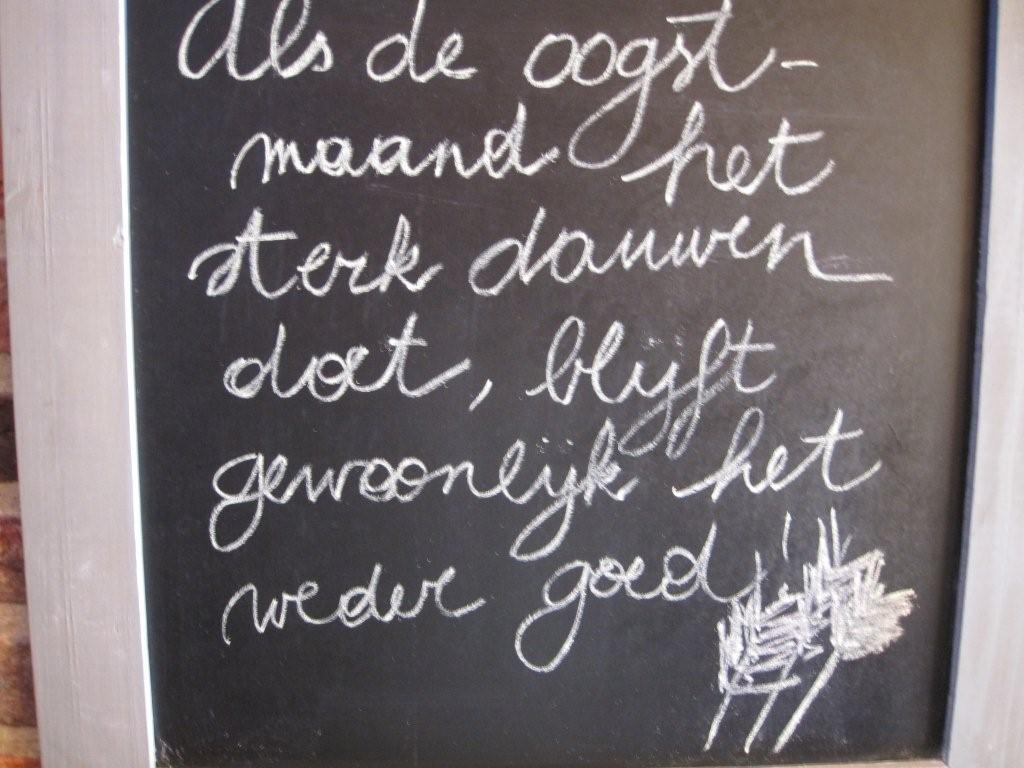 Als de oogst-
maand het
sterk dauwen
doet, blijft
gewoonlijk het
weder goed!